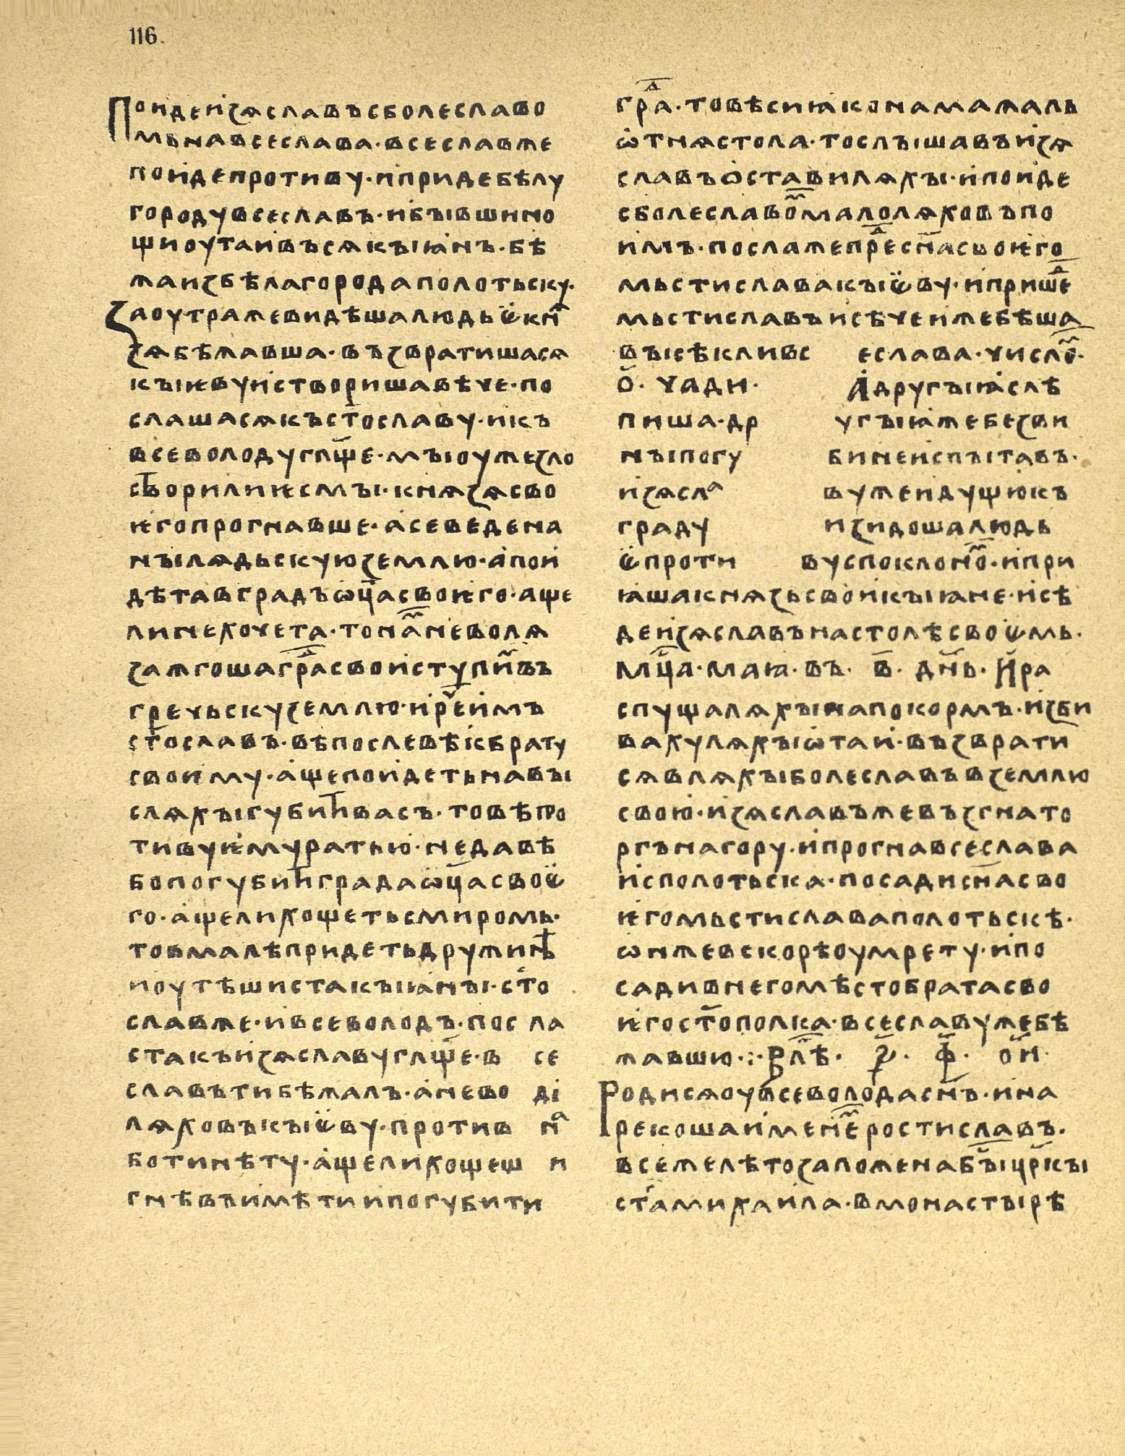 116.
Поидеизѧславъсболеславо
мьнавсеслава·всеславже
поидепротиву·ипридебѣлу
городувсеславъ·ибывшино
щиоутаивъсѧкыꙗнъ·бѣ
жаизбѣлагородаполотьску·
Заоутражевидѣшалюдьѥкн҃
зѧбѣжавша·възвратишасѧ
къıѥвуистворишавѣче·по
слашасѧкъст҃ославу·икъ
всеволодугл҃ще·мъıоужезло
створилиѥсмъı·кнѧзѧсво
ѥгопрогнавше·асеведена
нъıлѧдьскуюземлю·апои
дѣтавградъѡц҃асвоѥго·аще
линехочета·тонамъневолѧ
зажгошаграⷣсвоиступивъ
гречьскуземлю·иречеимъ
ст҃ославъ·вѣпослевѣкбрату
своиму·ащепоидетьнавъı
слѧхъıгубитивасъ·товѣпро
тивуѥмуратью·недавѣ
бопогубитиградаѡц҃асвоѥ
го·ащелихощетьсмиромь·
товмалѣпридетьдружинѣ
иоутѣшистакъıꙗнъı·ст҃о
славже·ивсеволодъ·пос ла
стакъизѧславугл҃ще·в се
славътибѣжалъ·анево ді
лѧховъкъıѥву·против наⷭ
ботинѣту·ащелихощеш и
гнѣвъимѣтиипогубити
граⷣ·товѣсиꙗконамажаль
ѡтнѧстола·тослъıшавъизѧ
славъѡставилѧхъı·ипоиде
сболеславомъмалолѧховъпо
имъ·послажепредсн҃асвоѥго
мьстиславакъıѥву·ипришеⷣ
мьстиславъисѣчеижебѣша
въıсѣкливс еслава·числоⷨ·
о҃·чади· Адругъıꙗслѣ
пиша·др угъıꙗжебезви
нъıпогу бинеиспъıтавъ·
изѧслᵃ вужеидущюкъ
граду изидошалюдь
ѥпроти вуспоклономъ·ипри
ꙗшакнѧзьсвоикъıꙗне·исѣ
деизѧславънастолѣсвоѥмь·
мц҃а·маꙗ·въ·в҃·дн҃ь·Ира
спущалѧхъıнапокормъ·изби
вахулѧхъıѡтаи·възврати
сѧвлѧхъıболеславъвземлю
свою·изѧславъжевъзгнато
ргънагору·ипрогнавсеслава
исполотьска·посадисн҃асво
ѥгомьстиславаполотьскѣ·
ѡнжевскорѣоумрету·ипо
садивнегомѣстобратасво
ѥгост҃ополка·всеславужебѣ
жавшю·:·В лѣⷮ· ҂ѕ҃· ф҃· о҃и·
Родисѧоувсеволодасн҃ъ·ина
рекошаименемъростиславъ·
всежелѣтозаложенабъıцр҃къı
ст҃амихаила·вмонастъıрѣ